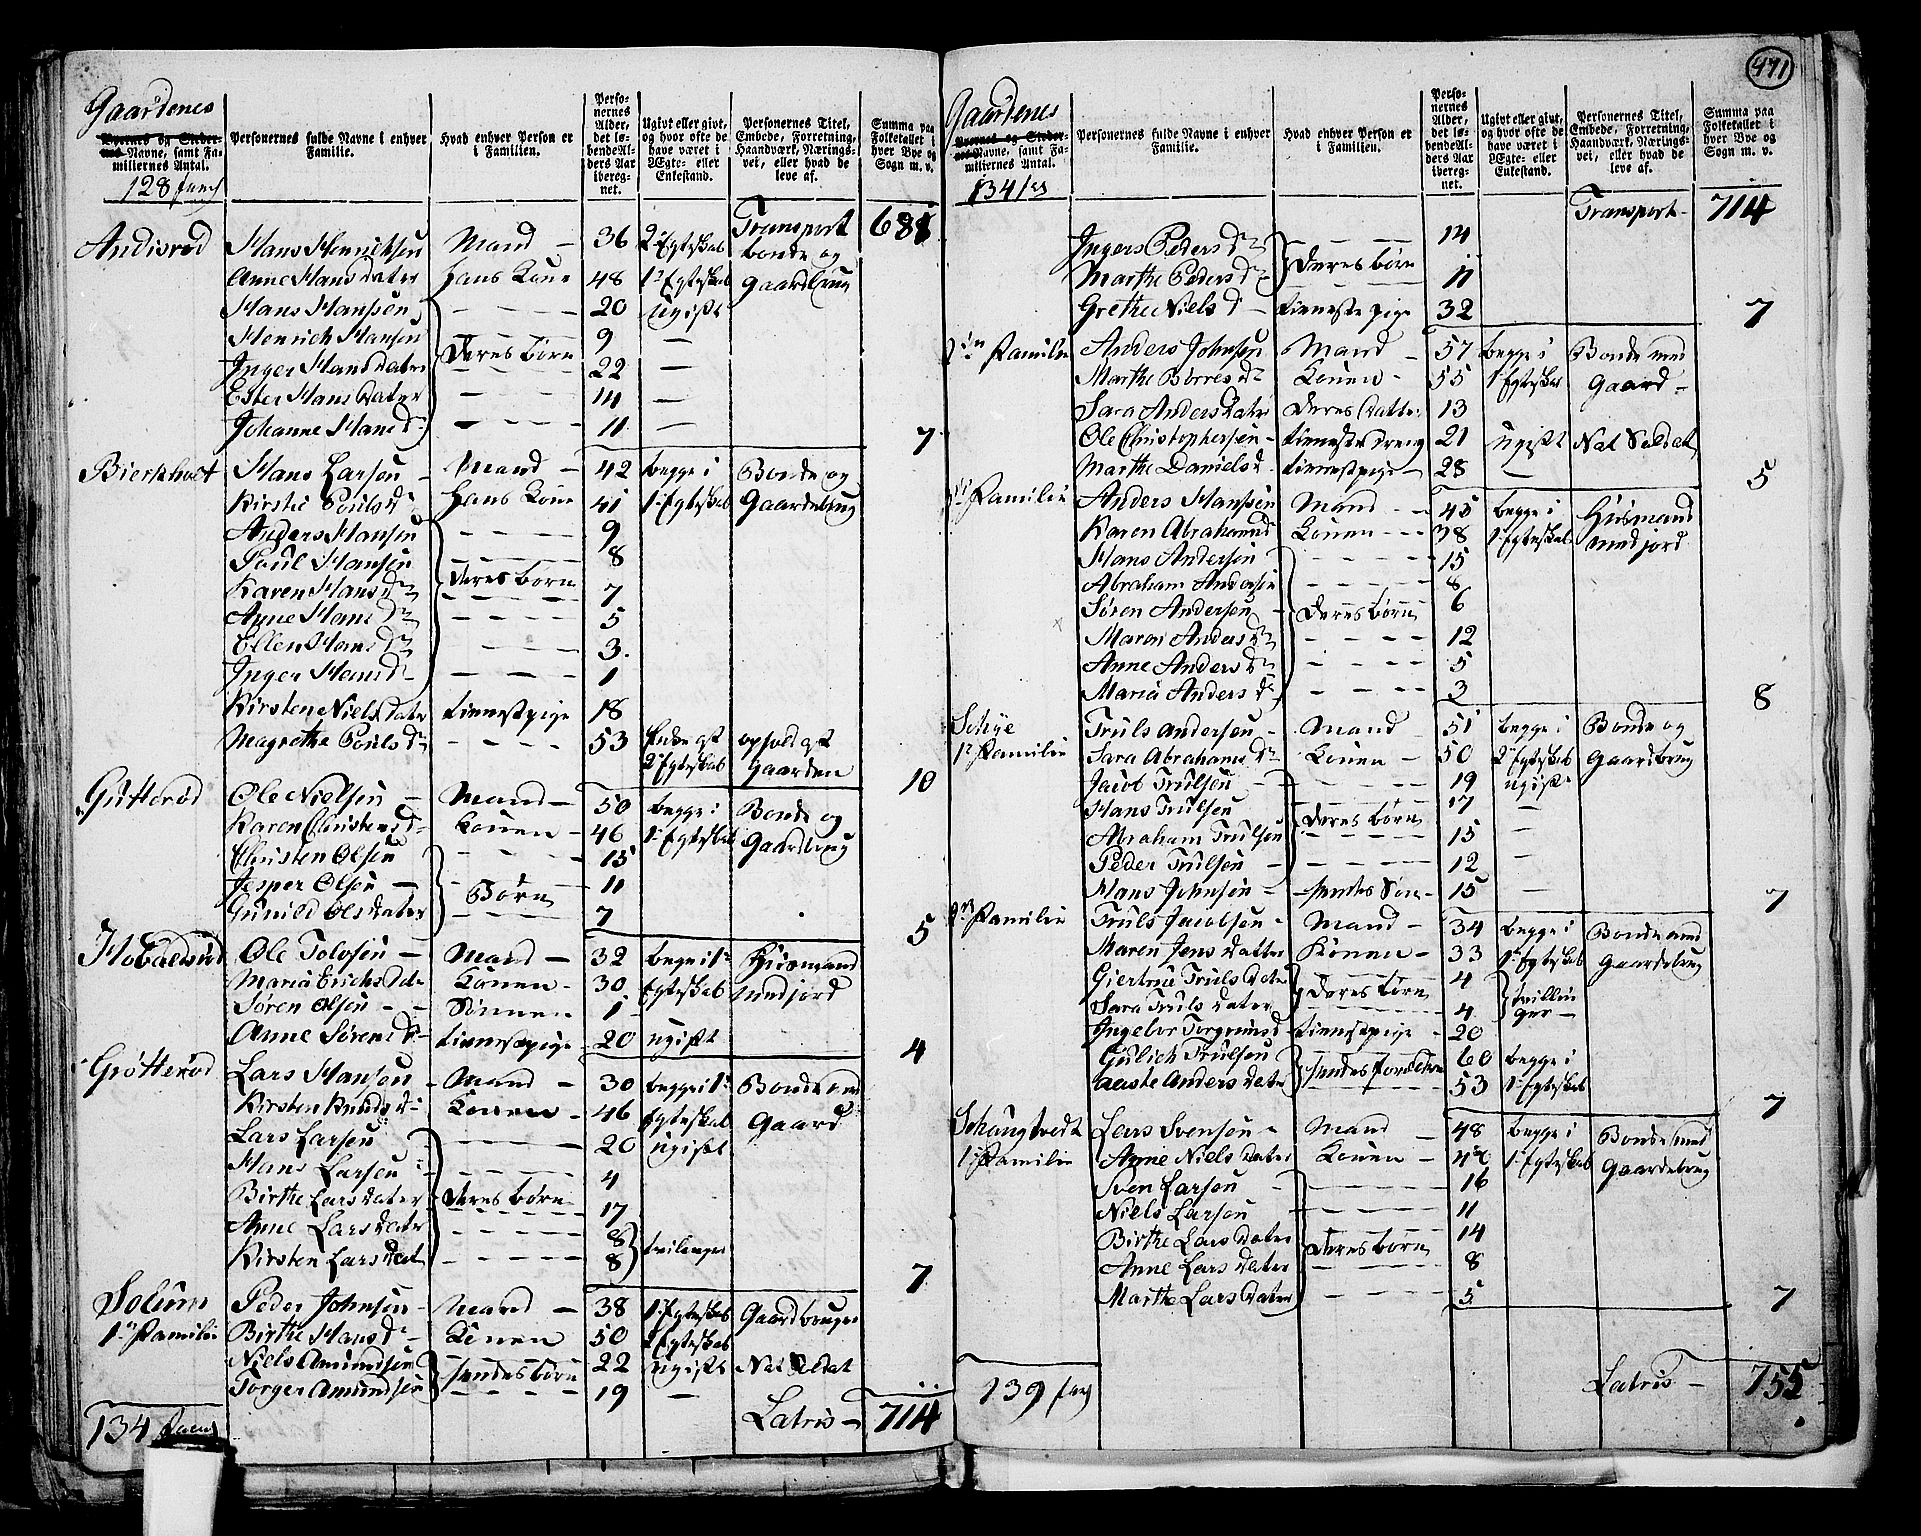 471
Gaardenes
Byernes og Stedernes Navne, samt Familiernes Antal.
Personernes fulde Navne i enhver Familie.
Hvad enhver Person er i Familien.
Personernes Alder, det løbende Alders Aar iberegnet.
Ugivt eller givt, og hvor ofte de have været i Ægte- eller Enkestand.
Personernes Titel, Embede, Forretning, Haandværk, Næringsvei, eller hvad de leve af.
Summa paa Folketallet i hver Bye og Sogn m. v.
128 fam
Transport 681
Andisrød Hans Henrichsen Mand 36 2 Egteskab bonde og
Anne Hans dater Hans Kone 48 1 Egteskab Gaardbrug
Hans Hansen 20 ugift
Henrich Hansen 9 —
Inger Hans dater Deres børn 22 —
Ester Hans dater 14 —
Johanne Hans d 11 — 7
Bierkholt Hans Larsen Mand 42 begge i Bonde og
Kirstie Pouls d Hans Kone 41 1 Egteskab Gaardebrug
Anders Hansen 9
Paul Hansen 8
Karen Hans d Deres børn 7
Anne Hans d 5
Ellen Hans d 3
Inger Hans d 1
Kirsten Niels dater tienestpige 18
Magrethe Pouls d 53 Enke af ophold af
2 Egteskab gaarden 10
Gutterød Ole Nielsen Mand 50 begge i Bonde og
Karen Christens d Konen 46 1 Egteskab Gaardbrug
Christen Olsen 15
Jesper Olsen Børn 11
Gunild Ols dater 7 5
Hobælsrud Ole Tolvsen Mand 32 begge i 1 Huusmand
Maria Erichs dater Konen 30 Egteskab med jord
Søren Olsen Sønnen 1
Anne Sørens d tienestpige 20 ugift 4
Grøtterød Lars Hansen Mand 30 begge i 1 Bonde med
Kirsten Knuds d Konen 46 Egteskab Gaard
Lars Larsen 20 ugift
Hans Larsen 4
Birthe Lars dater Deres børn 17
Anne Lars dater 8
Kirsten Lars dat 8 tvilenger 7
Solum Peder Johnsen Mand 38 1 Egteskab Gaardbruger
1 Familie Birthe Hans d Konen 50 2 Egteskab
Niels Amundsen hendes børn 22 ugift Nat Soldat
Torger Amundsen 19 —
134 Fam Latris 714
Gaardenes
Byernes og Stedernes Navne, samt Familiernes Antal.
Personernes fulde Navne i enhver Familie.
Hvad enhver Person er i Familien.
Personernes Alder, det løbende Alders Aar iberegnet.
Ugivt eller givt, og hvor ofte de have været i Ægte- eller Enkestand.
Personernes Titel, Embede, Forretning, Haandværk, Næringsvei, eller hvad de leve af.
Summa paa Folketallet i hver Bye og Sogn m. v.
134
Transport 714
Ingers Peders d 14
Marthe Peders d Deres børn 11
Grethe Niels d tieneste pige 32 7
2 Familie Anders Johnsen Mand 57 begge i Bonde med
Marthe Børres d Konen 55 1 Egteskab Gaard
Sara Anders dater Deres datter 13
Ole Christophersen tieneste dreng 21 ugift Nat Soldat
Marthe Daniels d tienestpige 28 — 5
Familie Anders Hansen Mand 45 begge i Huusmand
Karen Abrahams d Konen 38 1 Egteskab med jord
Hans Andersen 15
Abraham Andersen 8
Søren Andersen Deres børn 6
Maren Anders d 12
Anne Anders d 5
Maria Anders d 3 8
Schie Truls Andersen Mand 51 begge i Bonde og
1 Familie Sara Abrahams d Konen 50 2 Egteskab Gaardbrug
Jacob Trulsen 19 ugift
Hans Trulsen Deres børn 17 —
Abraham Trulsen 15 —
Peder Trulsen 12 —
Hans Johnsen hendes Søn 15 — 7
2 Familie Truls Jacobsen Mand 34 begge i Bonde med
Maren Jens datter Konen 33 1 Egteskab Gaardebrug
Giertrue Truls dater Deres børn 4 tvillin
Sara Truls dater 4 ger
Ingebor Torgrims d tienestpige 20
Gulich Trulsen hendes forældre 60 begge i
Aaste Anders dater 53 1 Egteskab 7
Schaugtvedt Lars Svensen Mand 48 begge i Bonde med
1 Familie Anne Niels dater Konen 1 Egteskab Gaardebrug
Sven Larsen 16
Niels Larsen 11
Birthe Lars dater Deres børn 14
Anne Lars dater 8
Marthe Lars dater 5 7
139 fam Latris 755